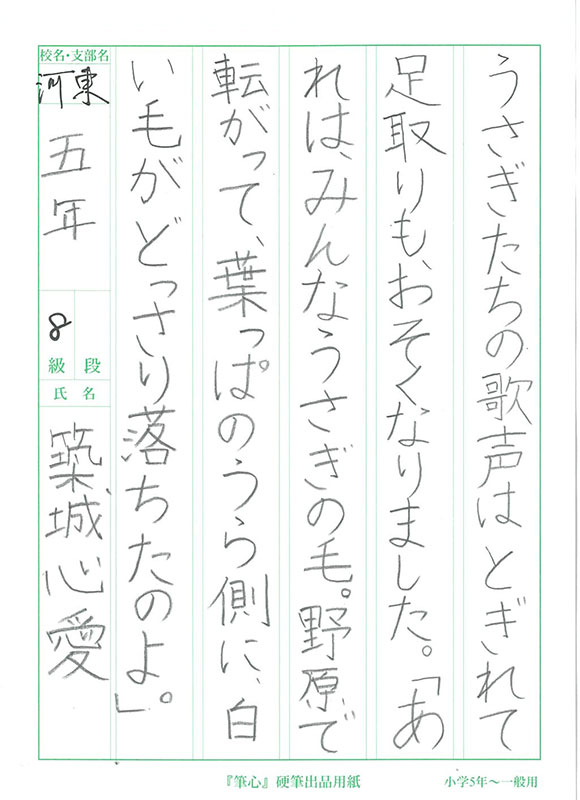 うさぎたちの歌声はとぎれて
足取りも、おそくなりました。「あ
れは、みんなうさぎの毛。野原で
転がって、葉っぱのうら側に、白
い毛がどっさり落ちたのよ。」
校名・支部名
河東
五年
8
級 段
氏名
築城心愛
『筆心』硬筆出品用紙
小学5年〜一般用